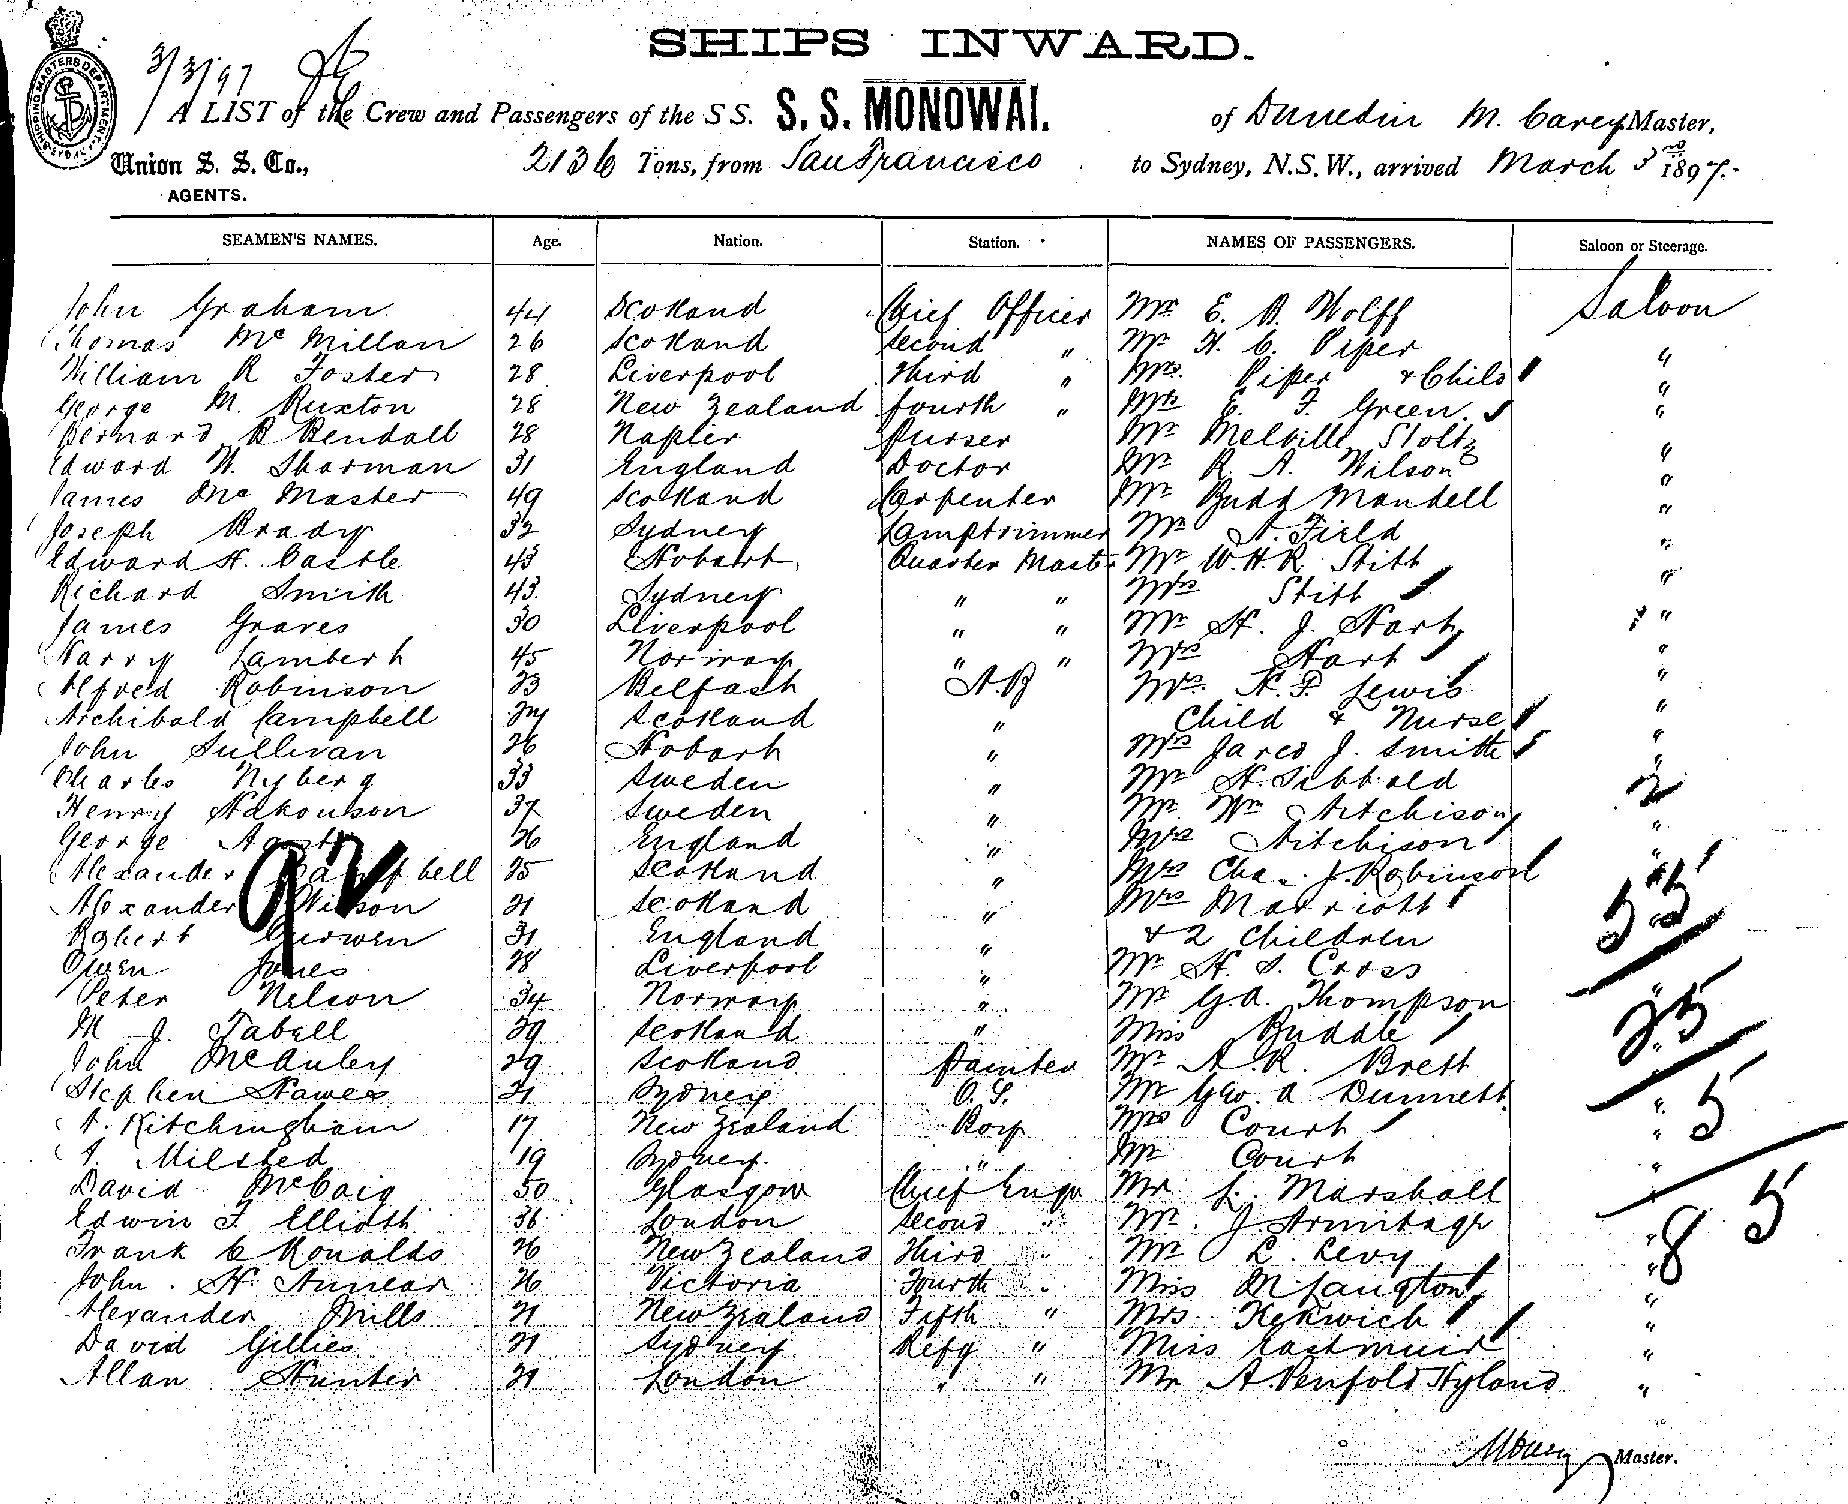 SHIPS INWARD.
3/3/97
A LIST of the Crew and Passengers of the S S. S. S. MONOWAI. of Dunedin M. Carey Master,
Union S. S. Co., 2136 Tons, from San Francisco to Sydney, N.S.W., arrived March 3rd 1897.
AGENTS.
SEAMEN'S NAMES. Age. Nation. Station. NAMES OF PASSENGERS. Saloon or Steerage.
John Graham 44 Scotland Chief Officer Mr E. A. Wolff Saloon
Thomas McMillan 26 Scotland Second " Mr H. C. Piper "
William R Foster 28 Liverpool Third " Mrs. Piper & Child "
George M. Ruxton 28 New Zealand Fourth " Mrs E. F. Green. "
Bernard R Rendall 28 Napier Purser Mr Melville Stoltz
Edward W. Sharman 31 England Doctor Mr R. A. Wilson "
James McMaster 49 Scotland Carpenter Mr Budd Mandell "
Joseph Brady 32 Sydney Lamptrimmer Mr A. Field "
Edward H. Castle 43 Hobart Quarter Mast Mr W.H.R. Stitt "
Richard Smith 43 Sydney " " Mrs Stitt "
James Graves 30 Liverpool " " Mr H. J. Hart "
Harry Lambert 45 Norway " " Mrs Hart "
Alfred Robinson 23 Belfast A.B Mrs. H. P. Lewis "
Archibald Campbell 24 Scotland " Child & Nurse "
John Sullivan 26 Hobart " Mrs Jared J. Smith "
Charles Nyberg 33 Sweden " Mr H. Sibbald "
Henry Hakonson 37 Sweden " Mr Wm Aitchison 2
George 26 England " Mrs Aitchison "
Alexander Campbell 25 Scotland " Mrs Chas. J. Robinson "
Alexander Wilson 21 Scotland " Mrs Marriott 55
Robert Curwen 31 England " & 2 Children
Owen Jones 28 Liverpool " Mr H. S. Cross
Peter Nelson 34 Norway " Mr G A. Thompson "
M J. Tabell 39 Scotland " Miss Buddle 25
John McAuley 29 Scotland Painter Mr A. R. Brett
Stephen Hawes 21 Sydney O. S. Mr Geo. A Dunnett "
A. Kitchingham 17 New Zealand Boy Mrs Court " 5
A. Milsted 19 Sydney " Mr Court "
David McCaig 50 Glasgow Chief Engr Mr L. Marshall "
Edwin F Elliott 36 London Second " Mr. J Armitage " 85
Frank C Ronalds 26 New Zealand Third " Mr L. Levy "
John. H. Annear 26 Victoria Fourth " Miss M Langton "
Alexander Mills 21 New Zealand Fifth " Mrs Kekwich "
David Gillies 21 Sydney Refg " Miss Eastmuir "
Allan Hunter 21 London " " Mr A. Penfold Hyland "
92
M Carey Master.